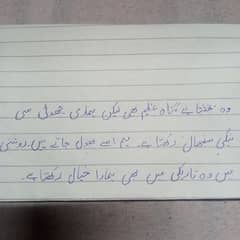 وہ بخشتا ہے گناہ عظیم بھی لیکن ہماری چھوٹی سی
نیکی سنبھال رکھتا ہے۔ ہم اسے بھول جاتے ہیں روشنی
میں وہ تاریکی میں بھی ہمارا خیال رکھتا ہے۔